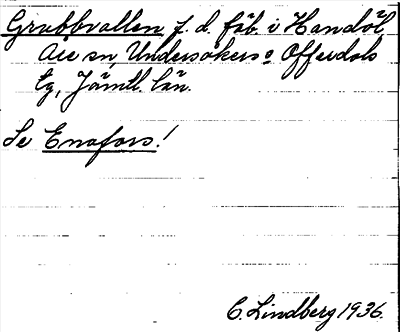 Grubbvallen f. d. fäb. i Handöl,
Åre sn, Undersåkers o Offerdals
tg, Jämtl. län.
Se Enafors!
C. Lindberg 1936.